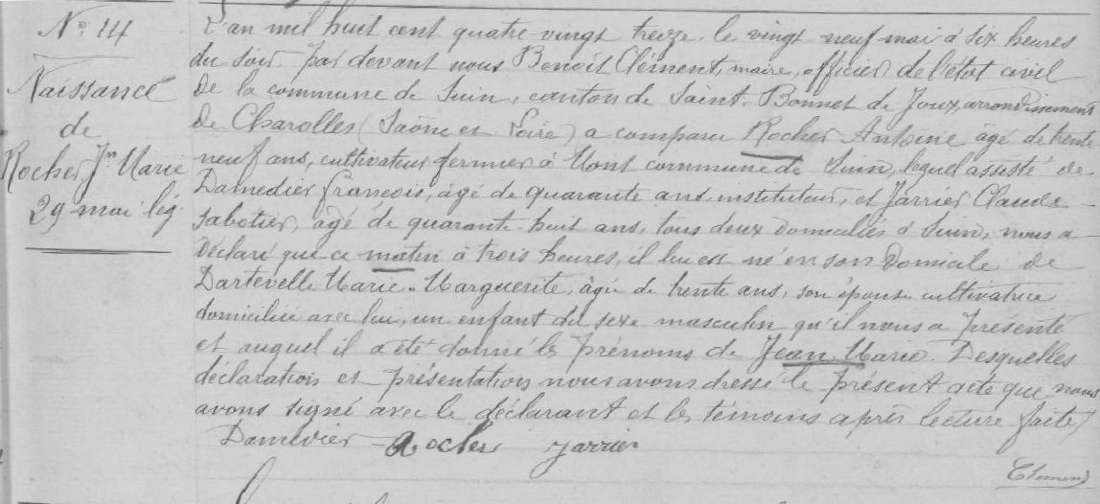 N° 14
Naissance
de
Rocher Jn Marie
29 mai lég.
L'an mil huit cent quatre vingt treize le vingt neuf mai à six heures
du soir par devant nous Benoît Clément, maire, officier de l'état civil
de la commune de Suin, canton de Saint Bonnet de Joux, arrondissement
de Charolles (Saône et Loire) a comparu Rocher Antoine âgé de trente
neuf ans, cultivateur fermier à Mont commune de Suin, lequel assisté de
Damedier françois, âgé de quarante ans instituteur, et Jarrier Claude
sabotier, âgé de quarante huit ans, tous deux domiciliés à Suin, nous a
déclaré que ce matin à trois heures, il lui est né en son domicile de
Dartevelle Marie-Marguerite, âgée de trente ans, son épouse cultivatrice
domiciliée avec lui, un enfant du sexe masculin qu'il nous a présenté
et auquel il a été donné les prénoms de Jean Marie. Desquelles
déclaration et présentation nous avons dressé le présent acte que nous
avons signé avec le déclarant et les témoins après lecture faite
Damedier Rocher Jarrier
Clément